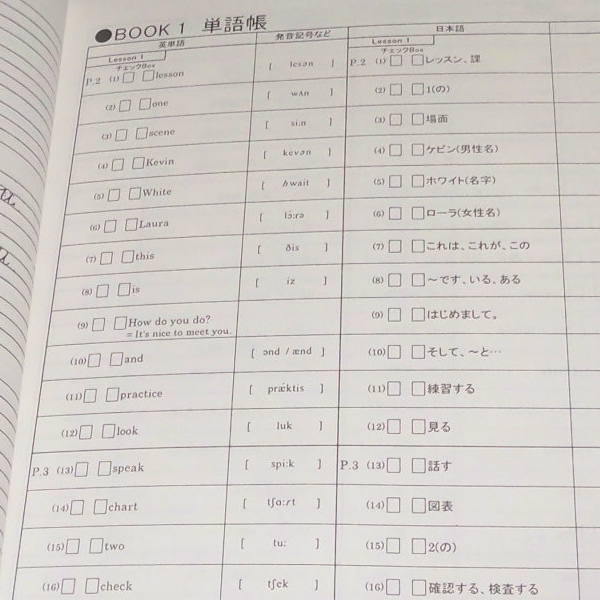 ●BOOK 1 単語帳
英単語 発音記号など 日本語
Lesson 1 Lesson 1
チェックBox チェックBox
P.2 (1) □ □lesson [ lesən ] P.2 (1) □ □レッスン、課
(2) □ □one [ wʌn ] (2) □ □1(の)
(3) □ □scene [ si:n ] (3) □ □場面
(4) □ □Kevin [ kevən ] (4) □ □ケビン(男性名)
(5) □ □White [ hwait ] (5) □ □ホワイト(名字)
(6) □ □Laura [ lɔ:rə ] (6) □ □ローラ(女性名)
(7) □ □this [ ðis ] (7) □ □これは、これが、この
(8) □ □is [ iz ] (8) □ □～です、いる、ある
(9) □ □How do you do? (9) □ □はじめまして。
= It's nice to meet you.
(10) □ □and [ ənd / ænd ] (10) □ □そして、～と…
(11) □ □practice [ prǽktis ] (11) □ □練習する
(12) □ □look [ luk ] (12) □ □見る
P.3 (13) □ □speak [ spi:k ] P.3 (13) □ □話す
(14) □ □chart [ tʃɑ:rt ] (14) □ □図表
(15) □ □two [ tu: ] (15) □ □2(の)
(16) □ □check [ tʃek ] (16) □ □確認する、検査する